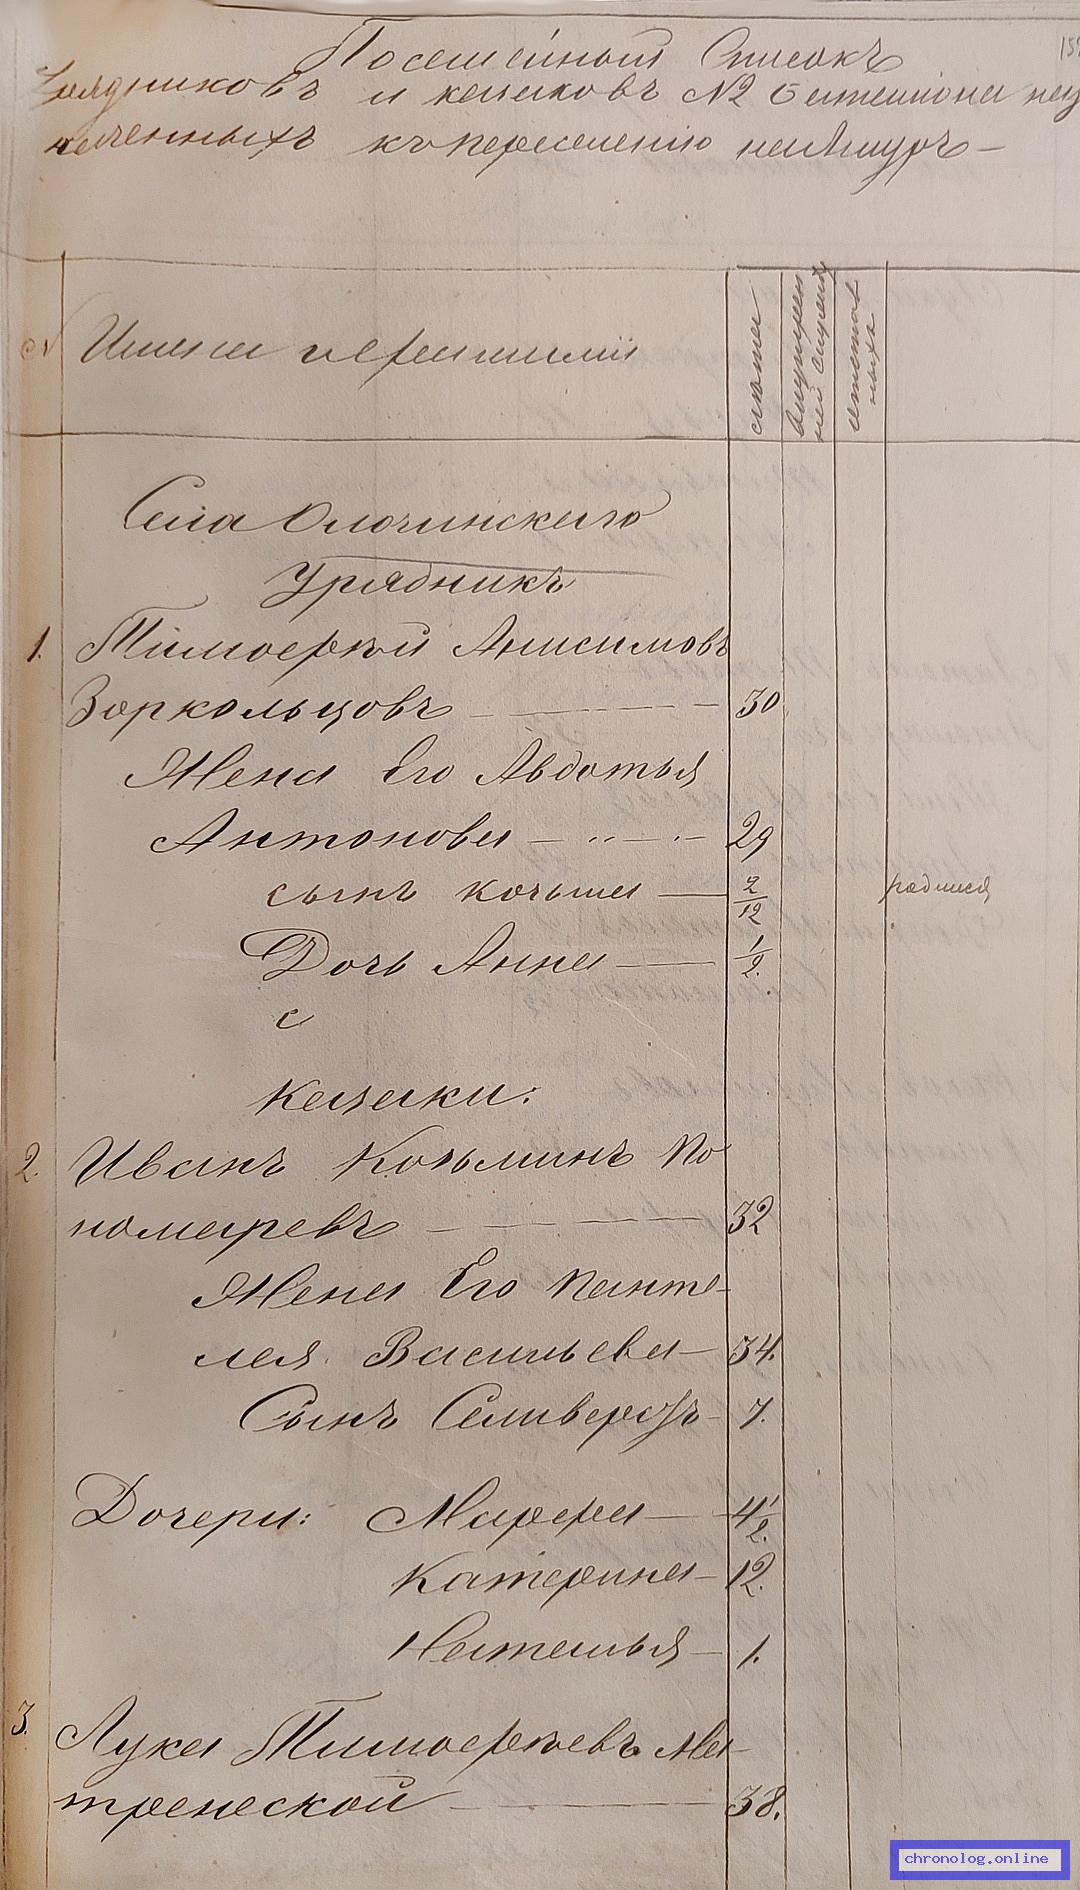 Посемейный Списокъ
Урядниковъ и казаковъ №2 Баталiона наз
наченныхъ къ переселенiю на Амуръ —
159
№ Имена и фамилiи
лѣта
остав
ныхъ
Села Олочинскаго
Урядникъ
1. Тимофѣй Анисимовъ
Зоркольцовъ — 30
Жена Его Авдотья
Антонова — 29
сынъ козьма — 2/12 родился
Дочь Анна — 1/2.
с
Казаки:
2. Иванъ Козьминъ По
номаревъ — 32
Жена Его Панте-
лея Васильева — 34.
Сынъ Селиверстъ - 7.
Дочери: Марфа — 4 1/2.
Катерина — 12.
Наталья — 1.
3. Лука Тимофѣевъ Ма-
тренской — 38.
chronolog.online